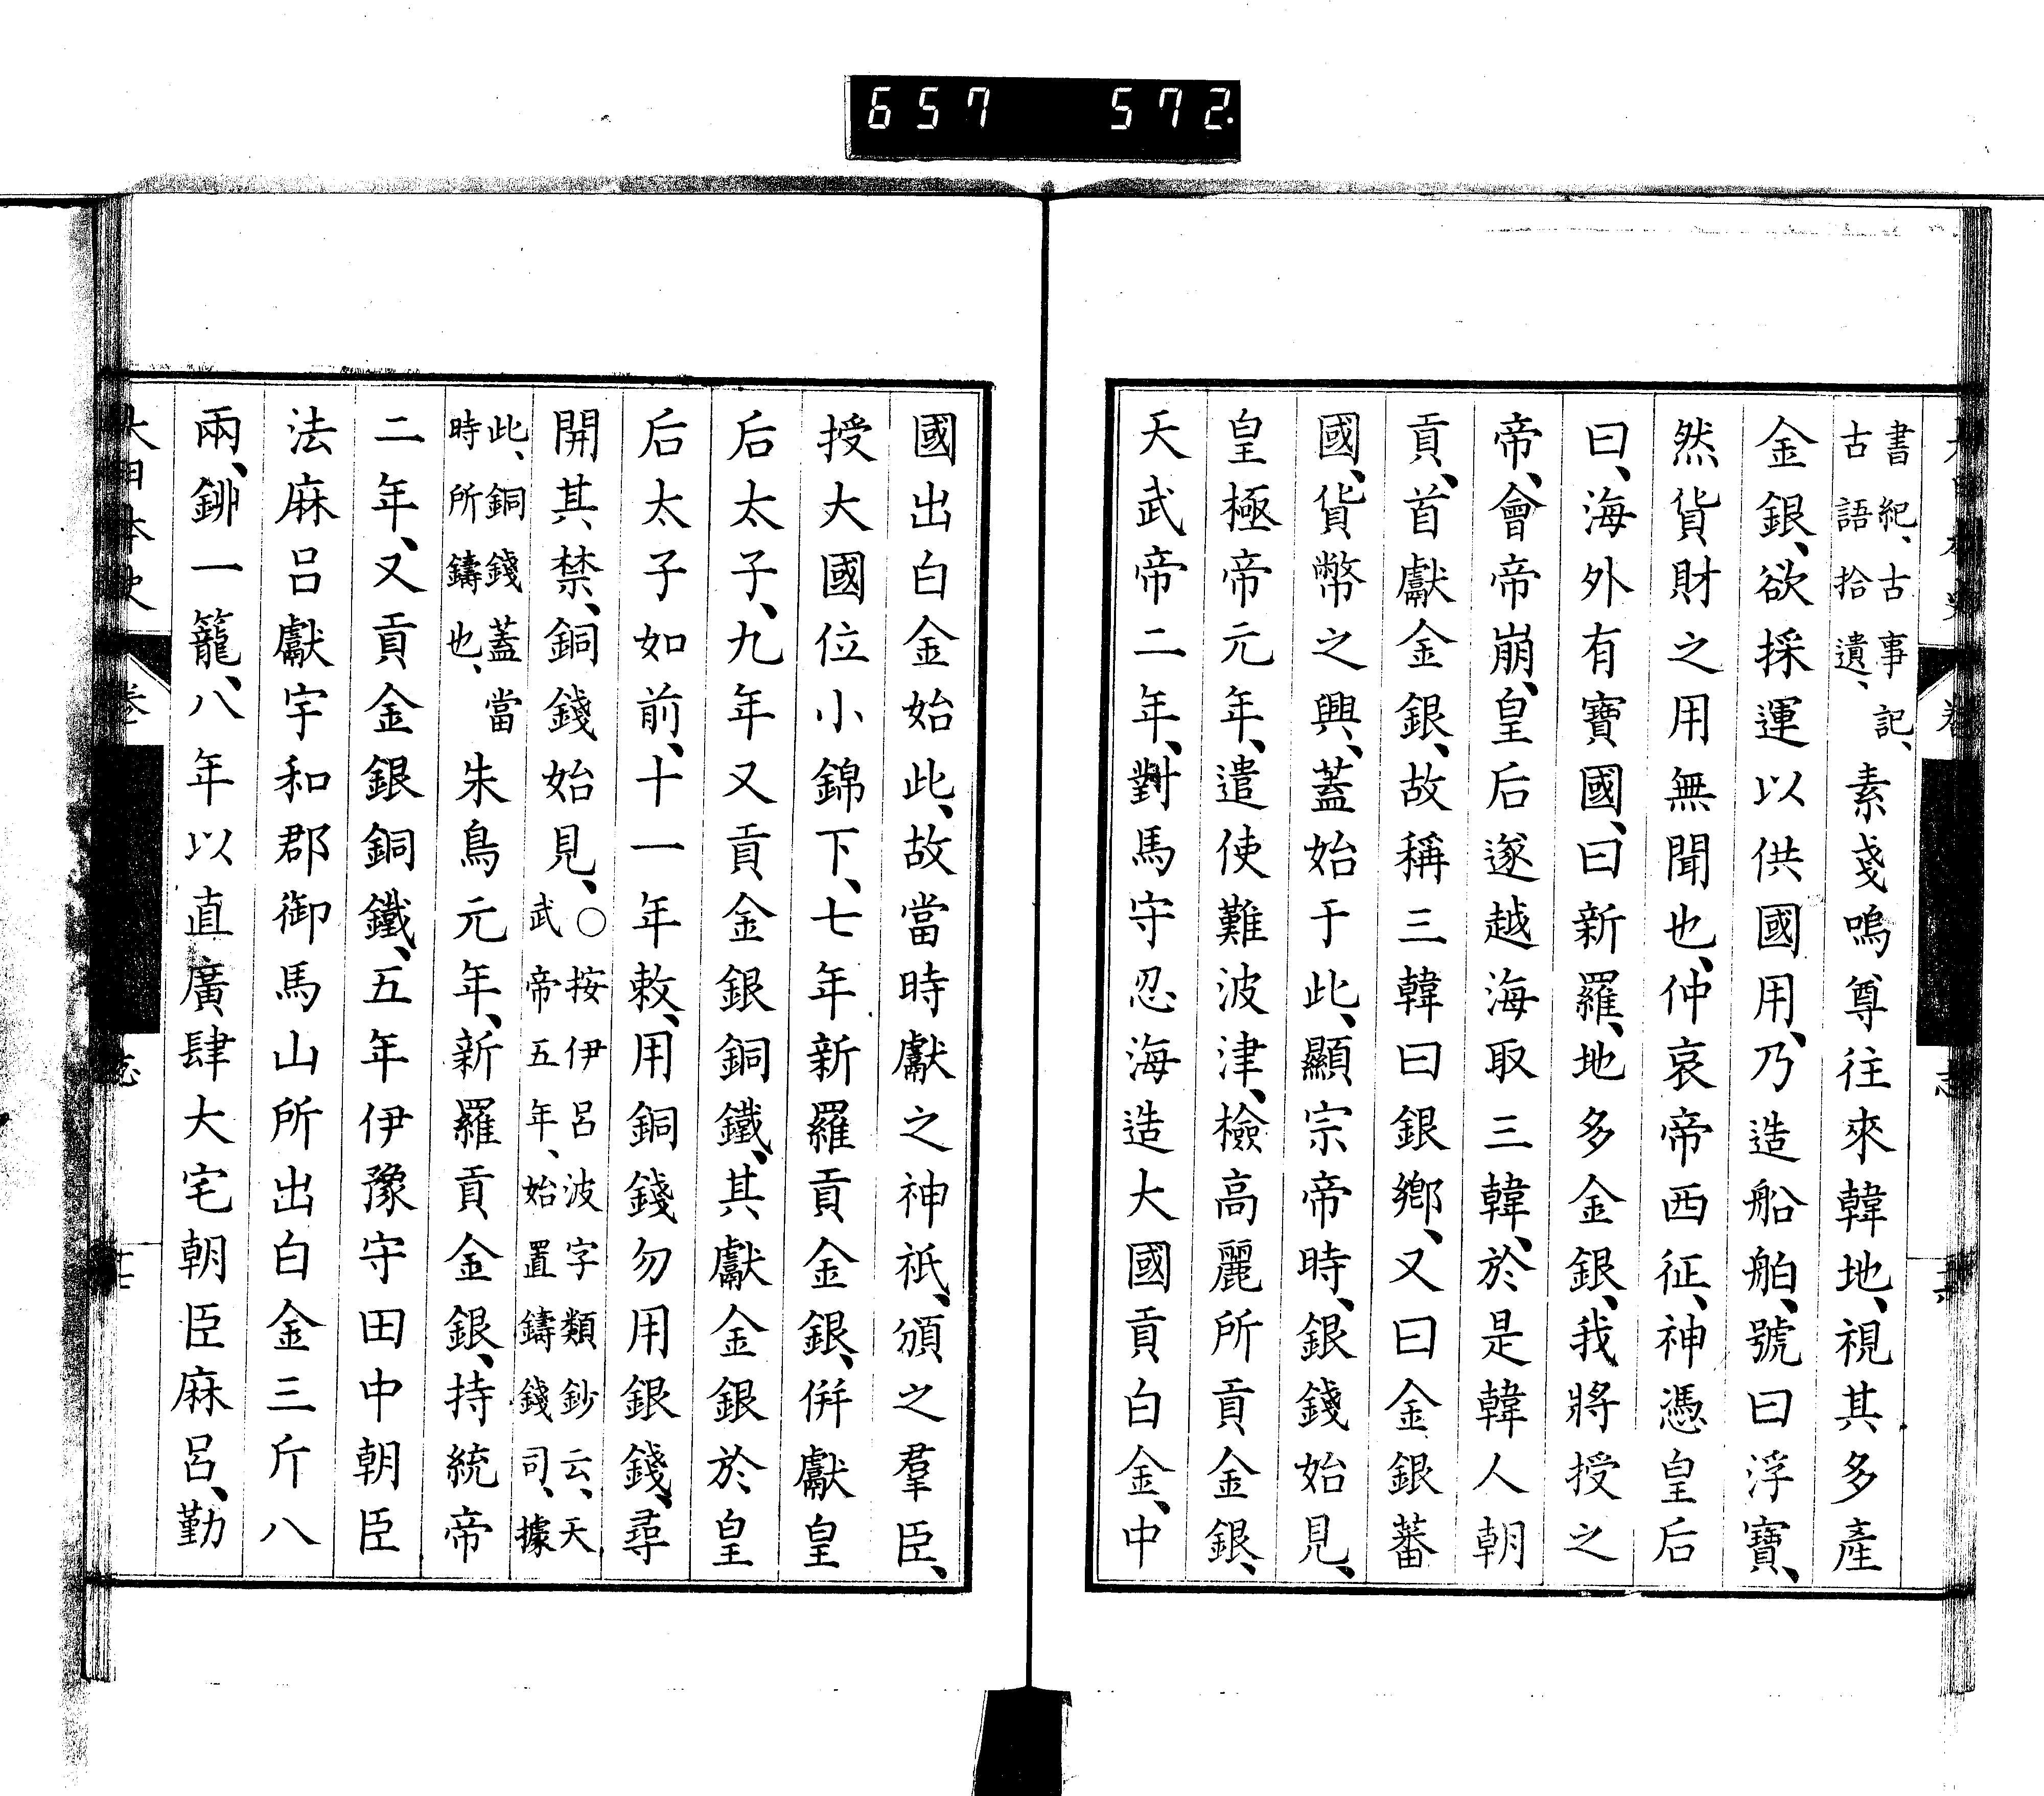 657 572.
書紀、古事記、
古語拾遺、
素戔嗚尊往來韓地、視其多產
金銀、欲採運以供國用、乃造船舶、號曰浮寶、
然貨財之用無聞也、仲哀帝西征、神憑皇后
曰、海外有寶國、曰新羅、地多金銀、我將授之
帝、會帝崩、皇后遂越海取三韓、於是韓人朝
貢、首獻金銀、故稱三韓曰銀鄉、又曰金銀蕃
國、貨幣之興、蓋始于此、顯宗帝時、銀錢始見、
皇極帝元年、遣使難波津、檢高麗所貢金銀、
天武帝二年、對馬守忍海造大國貢白金、中
國出白金始此、故當時獻之神祇、頒之羣臣、
授大國位小錦下、七年新羅貢金銀、併獻皇
后太子、九年又貢金銀銅鐵、其獻金銀於皇
后太子如前、十一年敕、用銅錢勿用銀錢、尋
開其禁、銅錢始見、
○按伊呂波字類鈔云、天
武帝五年、始置鑄錢司、據
此、銅錢蓋當
時所鑄也、
朱鳥元年、新羅貢金銀、持統帝
二年、又貢金銀銅鐵、五年伊豫守田中朝臣
法麻呂獻宇和郡御馬山所出白金三斤八
兩、鉚一籠、八年以直廣肆大宅朝臣麻呂、勤
大日本史 卷 志